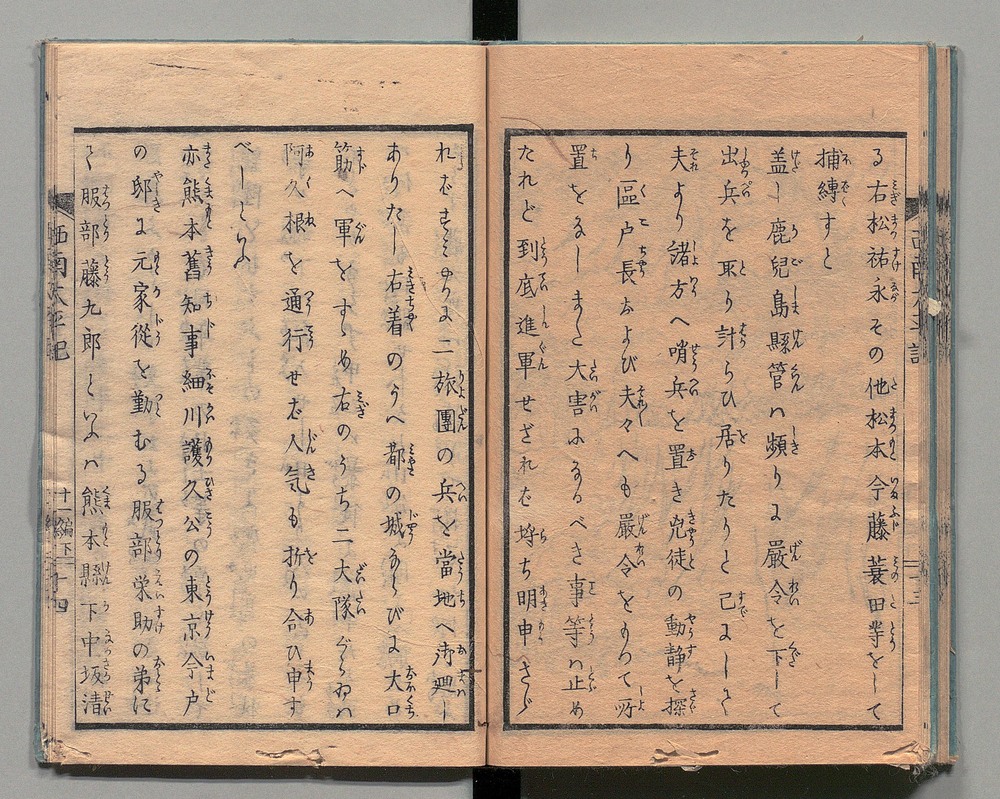 る右松祐永その他松本今藤蓑田等をして
捕縛すと
盖し鹿兒島縣管ハ頻りに嚴令を下して
出兵を取り計らひ居りたりと己にして
夫より諸方へ哨兵を置き兇徒の動静を探
り區戸長および夫々へも嚴令をもつて所
置をなしまた大害になるべき事等ハ止め
たれど到底進軍せざれば埓ち明申さず
ればすミやかに二旅團の兵を當地へ御廻し
ありたし右着のうへ都の城ならびに大口
筋へ軍をすゝめ右のうち二大隊ぐらゐハ
阿久根を通行せば人気も折り合ひ申す
べしといふ
亦熊本舊知事細川護久公の東京今戸
の邸に元家從を勤むる服部栄助の弟に
て服部藤九郎といふハ熊本縣下中坂清
西南太平記
十一編下
十四
西南太平記
十三